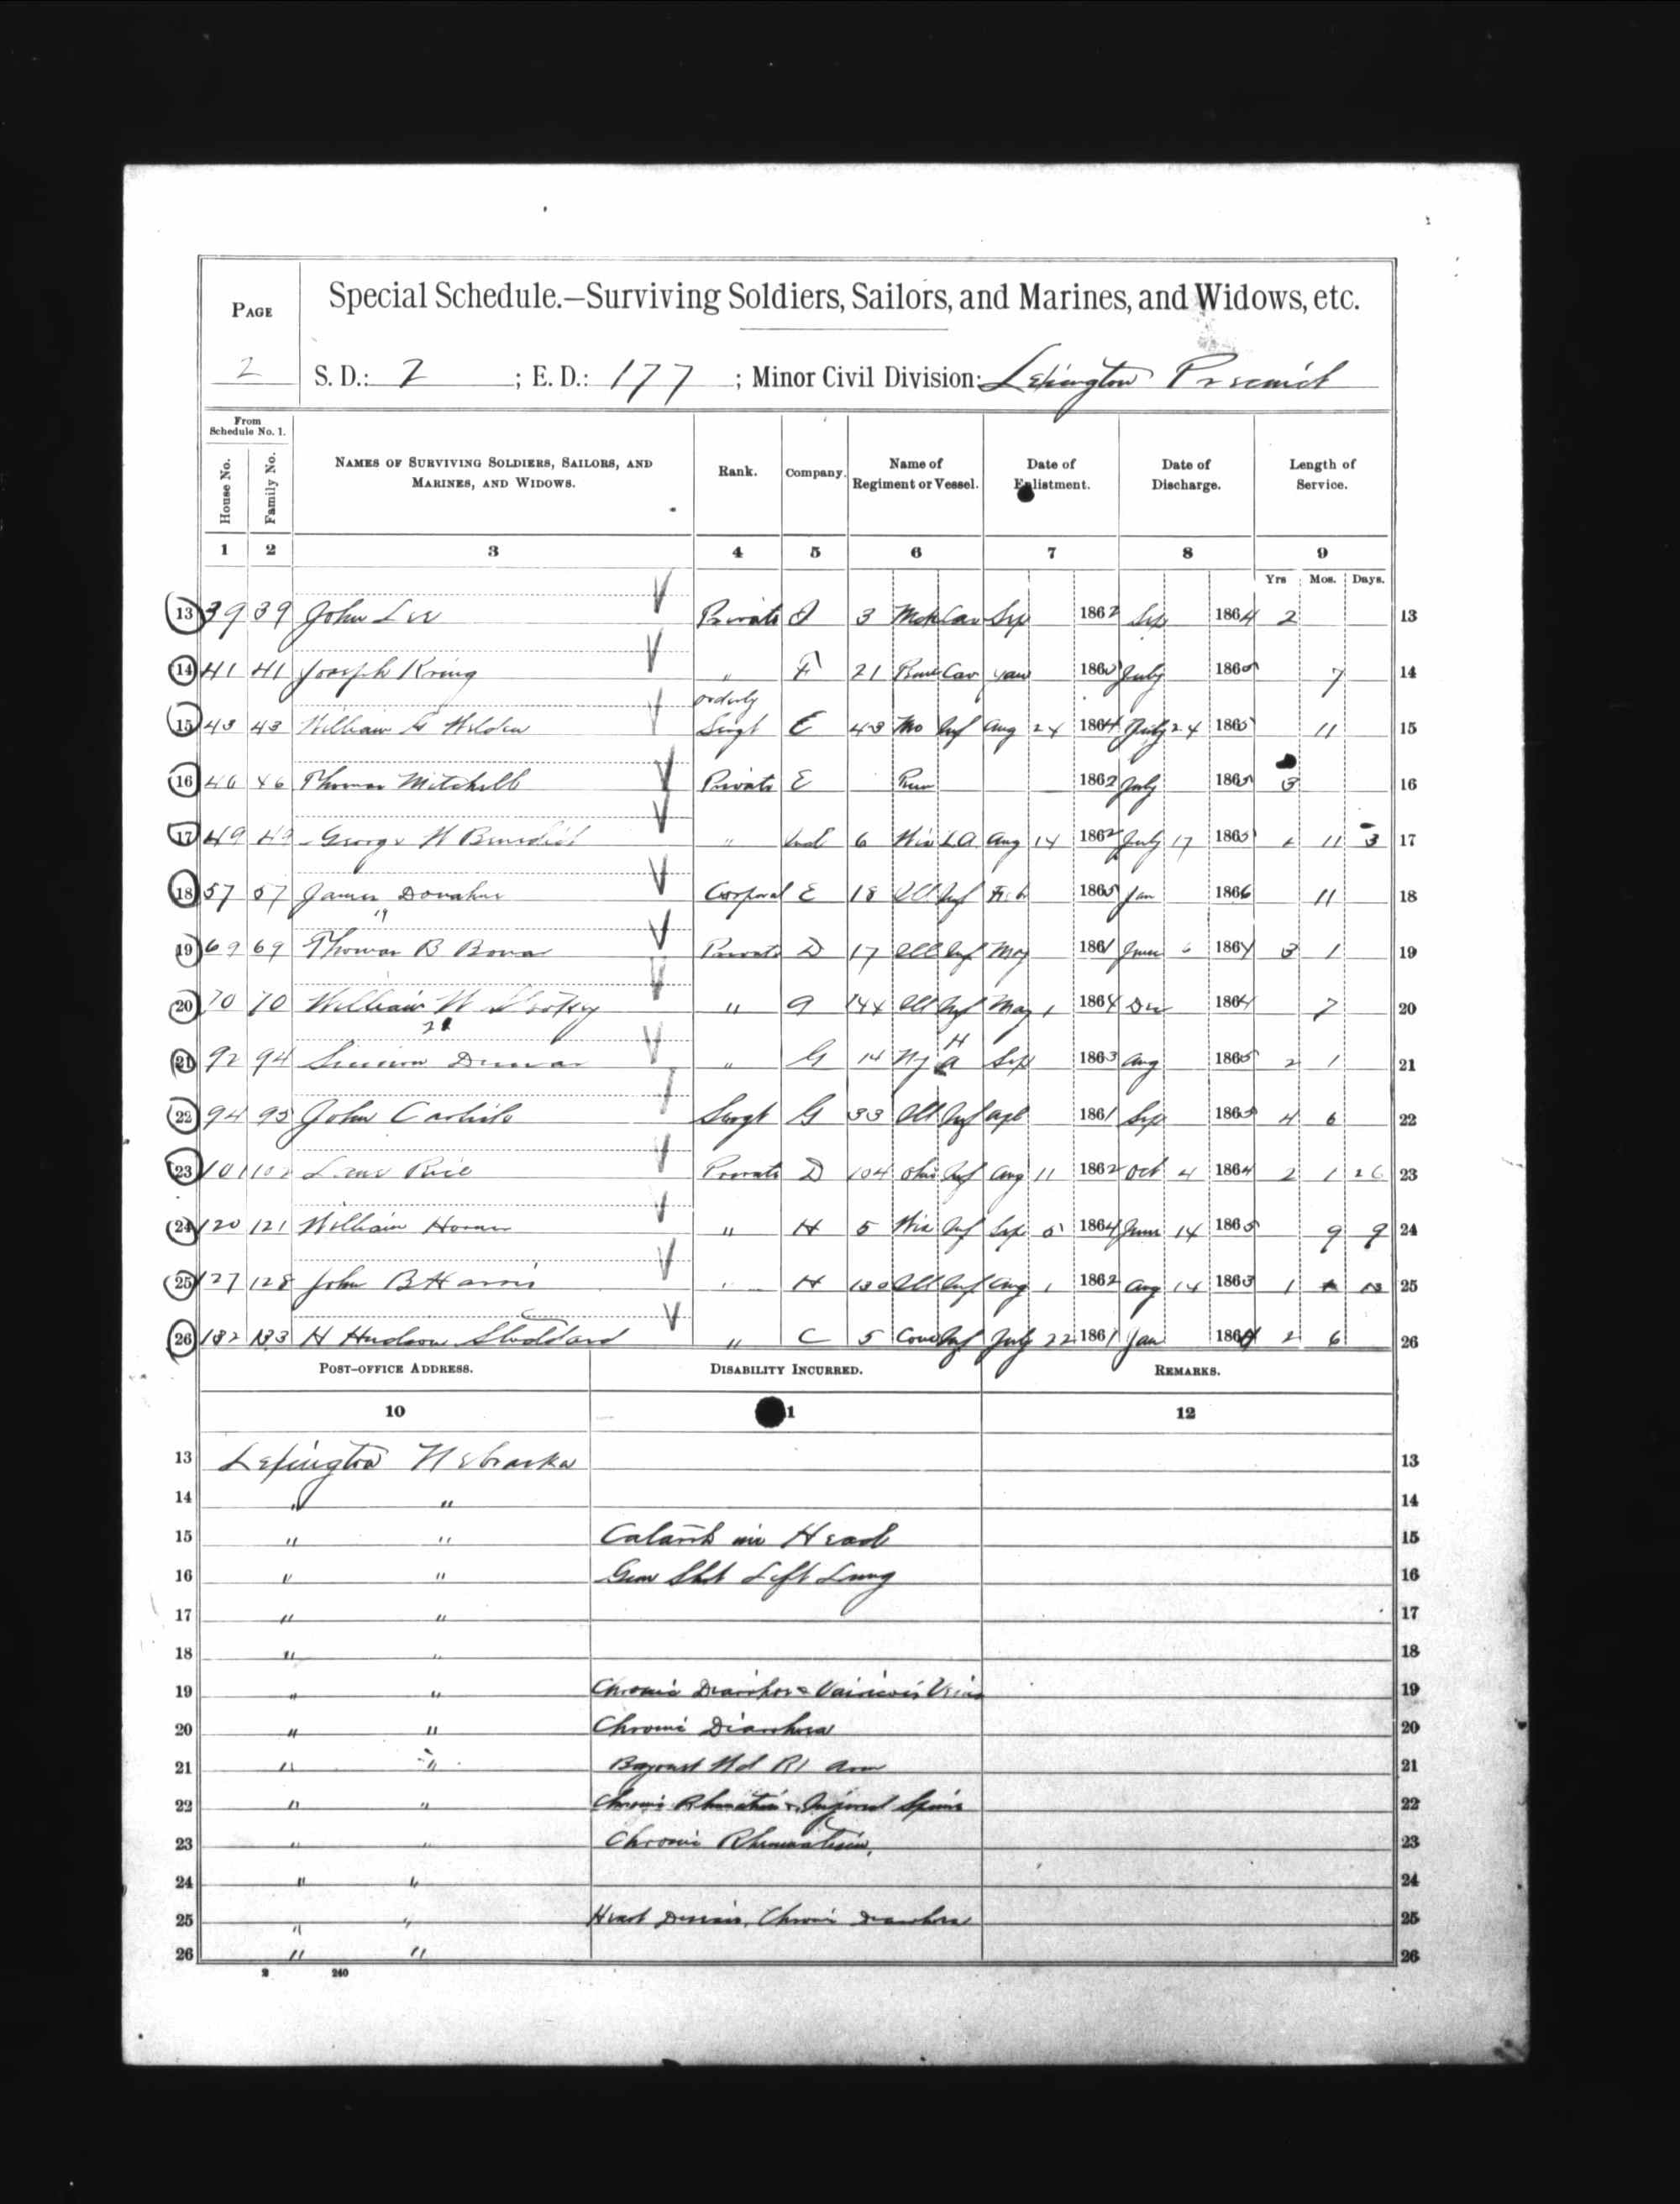 PAGE
2
Special Schedule.—Surviving Soldiers, Sailors, and Marines, and Widows, etc.
S. D.: 2 ; E. D.: 177 ; Minor Civil Division: Lexington Precinct
From Schedule No. 1.
House No.
Family No.
NAMES OF SURVIVING SOLDIERS, SAILORS, AND MARINES, AND WIDOWS.
Rank.
Company.
Name of Regiment or Vessel.
Date of Enlistment.
Date of Discharge.
Length of Service.
1 2 3 4 5 6 7 8 9
Yrs Mos. Days.
13 39 39 John Lee Private 3 Cav Sep 1862 Sep 1864 2 13
14 41 41 Joseph Kring " F 21 Cav Jan 1865 July 1865 7 14
orderly
15 43 43 William G Sergt E 43 Mo Inf Aug 24 1864 July 24 1865 11 15
16 46 46 Thomas Mitchell Private E 1862 July 1865 3 16
17 49 49 George W Benedict " Ind 6 Wis L A Aug 14 1862 July 17 1865 11 3 17
18 57 57 James Donahue Corporal E 18 Ill Inf Feb 1865 Jan 1866 11 18
19 69 69 Thomas B Private D 17 Ill Inf May 1861 June 6 1864 3 1 19
20 70 70 William W " G 144 Ill Inf May 1 1864 Dec 1864 7 20
21 92 94 " G 14 NY H A Sep 1863 Aug 1865 2 1 21
22 94 95 John Carlisle Sergt G 33 Ill Inf Apl 1861 Sep 1865 4 6 22
23 101 102 Rice Private D 104 Ohio Inf Aug 11 1862 Oct 4 1864 2 1 26 23
24 120 121 William " H 5 Wis Inf Sep 5 1864 June 14 1865 9 9 24
25 127 128 John B Harris " H 130 Ill Inf Aug 1 1862 Aug 14 1863 1 13 25
26 132 133 H Hudson Stoddard " C 5 Conn Inf July 22 1861 Jan 1864 2 6 26
POST-OFFICE ADDRESS. DISABILITY INCURRED. REMARKS.
10 11 12
13 Lexington Nebraska 13
14 " " 14
15 " " Catarrh in Head 15
16 " " Gun Shot Left Lung 16
17 " " 17
18 " " 18
19 " " Chronic Diarrhoea Veins 19
20 " " Chronic Diarrhoea 20
21 " " Bayonet Wd Rt Arm 21
22 " " Chronic Injured Spine 22
23 " " Chronic Rheumatism. 23
24 " " 24
25 " " Heart Disease, Chronic Diarrhoea 25
26 " " 26
2 240